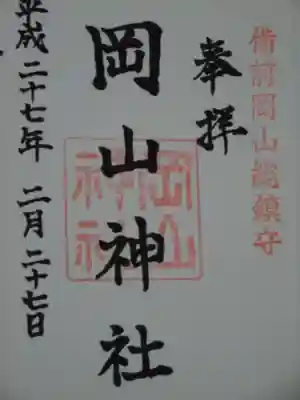 備前岡山総鎮守
奉拝
岡山神社
岡山神社
平成二十七年 二月二十七日